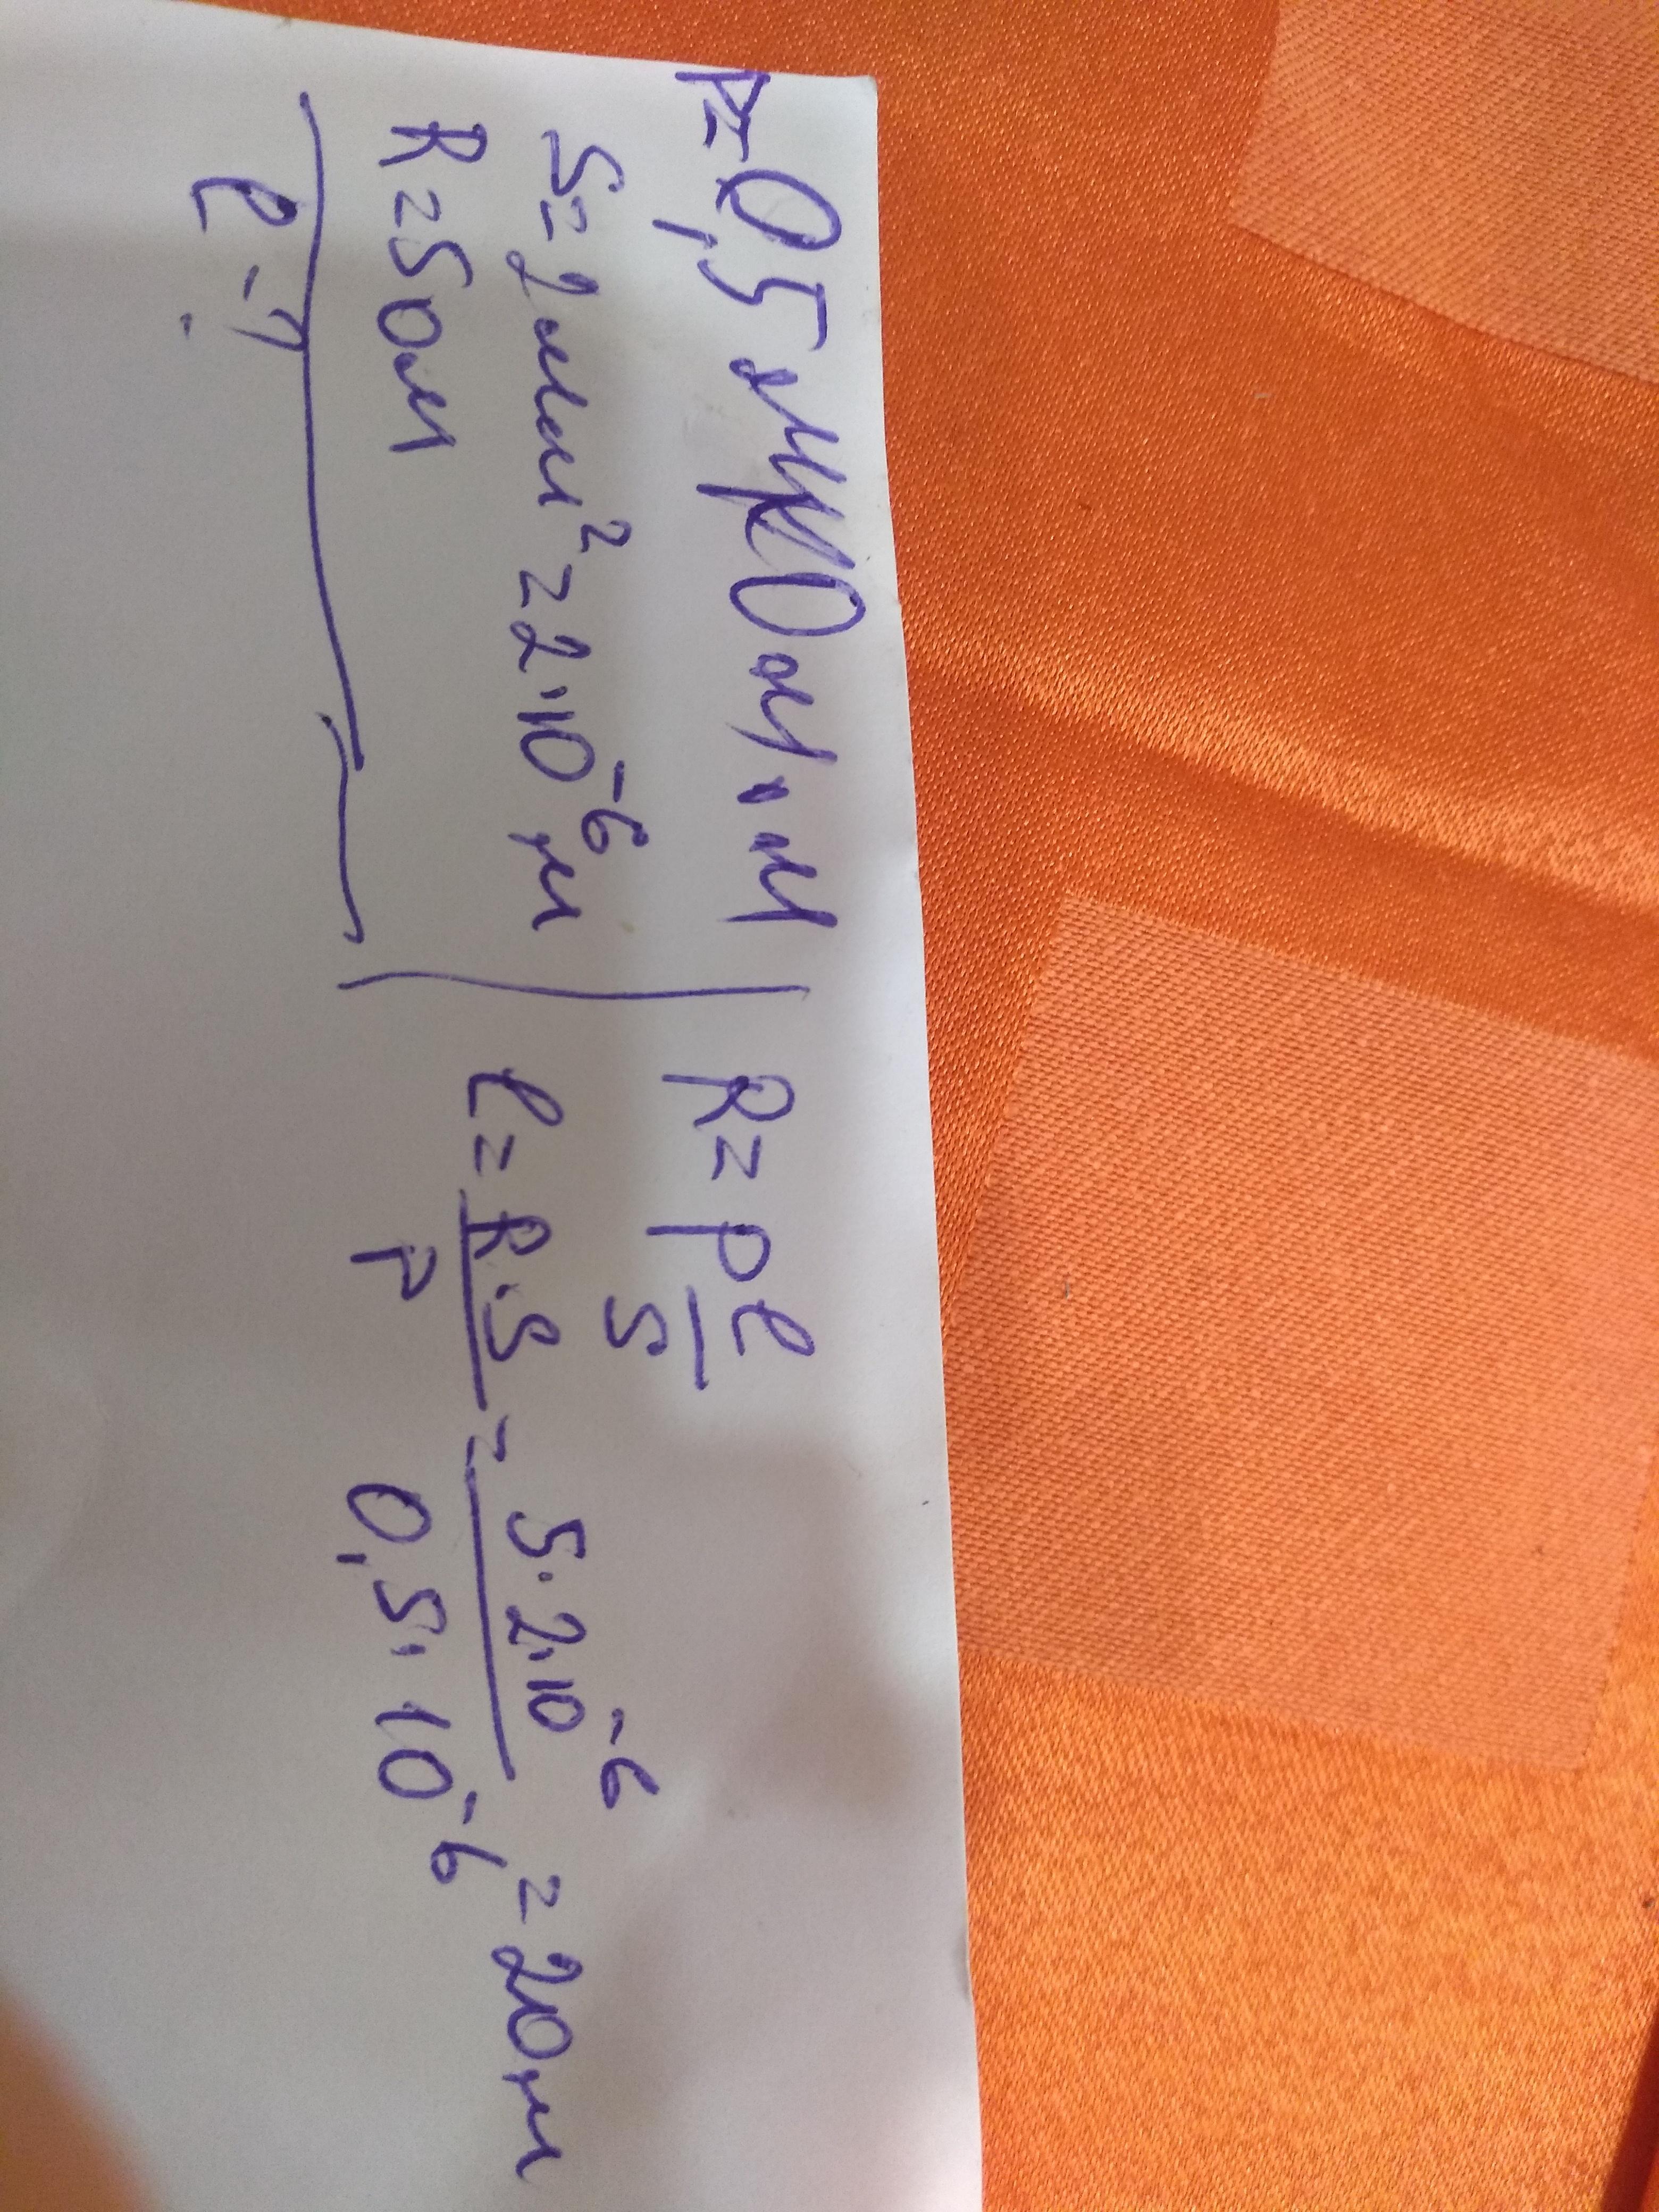 ρ=0,5 мкОм·м
S=2мм²=2·10⁻⁶м
R=5Ом
l-?
R=ρl/S
l=R·S/ρ=5·2·10⁻⁶/0,5·10⁻⁶=20м